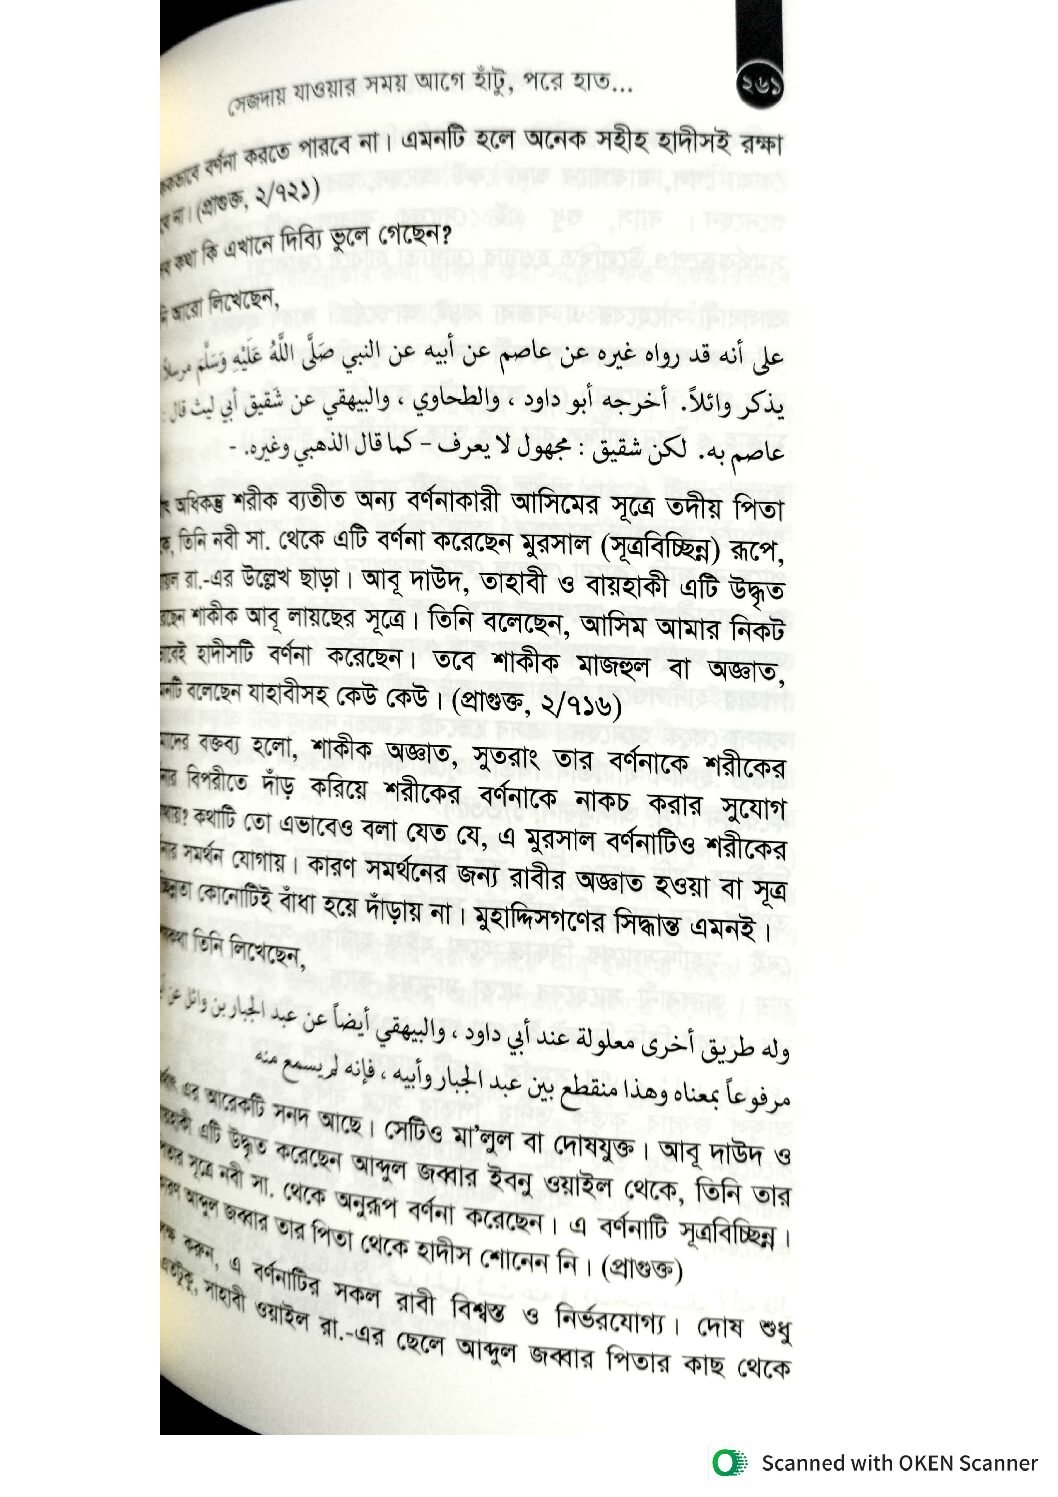 সেজদায় যাওয়ার সময় আগে হাঁটু, পরে হাত...
২৬১
বর্ণনা করতে পারবে না। এমনটি হলে অনেক সহীহ হাদীসই রক্ষা
না। (প্রাগুক্ত, ২/৭২১)
কথা কি এখানে দিব্যি ভুলে গেছেন?
আরো লিখেছেন,
على أنه قد رواه غيره عن عاصم عن أبيه عن النبي صَلَّى اللَّهُ عَلَيْهِ وَسَلَّمَ مرسلاً
يذكر وائلاً. أخرجه أبو داود ، والطحاوي ، والبيهقي عن شقيق أبي ليث قال :
عاصم به. لكن شقيق : مجهول لا يعرف - كما قال الذهبي وغيره. -
অধিকন্তু শরীক ব্যতীত অন্য বর্ণনাকারী আসিমের সূত্রে তদীয় পিতা
তিনি নবী সা. থেকে এটি বর্ণনা করেছেন মুরসাল (সূত্রবিচ্ছিন্ন) রূপে,
রা.-এর উল্লেখ ছাড়া। আবূ দাউদ, তাহাবী ও বায়হাকী এটি উদ্ধৃত
শাকীক আবূ লায়ছের সূত্রে। তিনি বলেছেন, আসিম আমার নিকট
হাদীসটি বর্ণনা করেছেন। তবে শাকীক মাজহুল বা অজ্ঞাত,
বলেছেন যাহাবীসহ কেউ কেউ। (প্রাগুক্ত, ২/৭১৬)
বক্তব্য হলো, শাকীক অজ্ঞাত, সুতরাং তার বর্ণনাকে শরীকের
বিপরীতে দাঁড় করিয়ে শরীকের বর্ণনাকে নাকচ করার সুযোগ
কথাটি তো এভাবেও বলা যেত যে, এ মুরসাল বর্ণনাটিও শরীকের
সমর্থন যোগায়। কারণ সমর্থনের জন্য রাবীর অজ্ঞাত হওয়া বা সূত্র
কোনোটিই বাঁধা হয়ে দাঁড়ায় না। মুহাদ্দিসগণের সিদ্ধান্ত এমনই।
তিনি লিখেছেন,
وله طريق أخرى معلولة عند أبي داود ، والبيهقي أيضاً عن عبد الجبار بن وائل عن
مرفوعاً بمعناه وهذا منقطع بين عبد الجبار وأبيه ، فإنه لم يسمع منه
এর আরেকটি সনদ আছে। সেটিও মা'লুল বা দোষযুক্ত। আবূ দাউদ ও
এটি উদ্ধৃত করেছেন আব্দুল জব্বার ইবনু ওয়াইল থেকে, তিনি তার
সূত্রে নবী সা. থেকে অনুরূপ বর্ণনা করেছেন। এ বর্ণনাটি সূত্রবিচ্ছিন্ন।
আব্দুল জব্বার তার পিতা থেকে হাদীস শোনেন নি। (প্রাগুক্ত)
করুন, এ বর্ণনাটির সকল রাবী বিশ্বস্ত ও নির্ভরযোগ্য। দোষ শুধু
সাহাবী ওয়াইল রা.-এর ছেলে আব্দুল জব্বার পিতার কাছ থেকে
Scanned with OKEN Scanner